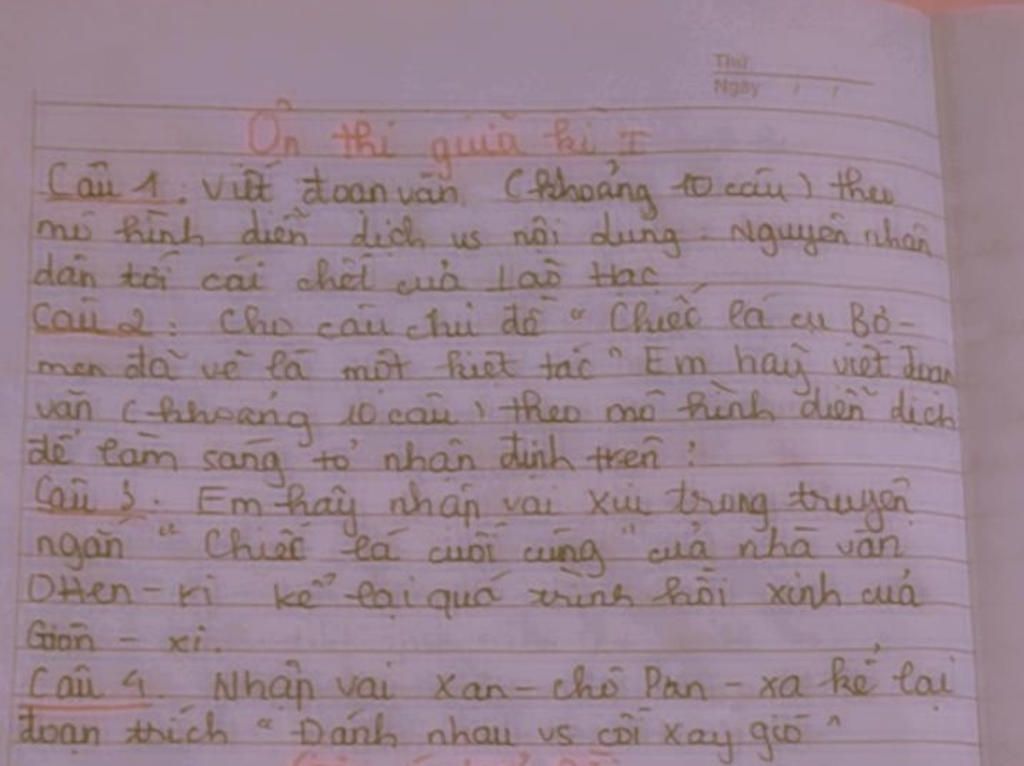 Thứ
Ngày / /
Ôn thi giữa kì I
Câu 1: Viết đoạn văn (khoảng 10 câu) theo
mô hình diễn dịch vs nội dung: Nguyên nhân
dẫn tới cái chết của Lão Hạc
Câu 2: Cho câu chủ đề " Chiếc lá cụ Bơ-
men đã vẽ là một kiệt tác" Em hãy viết đoạn
văn (khoảng 10 câu) theo mô hình diễn dịch
để làm sáng tỏ nhận định trên?
Câu 3: Em hãy nhập vai Xiu trong truyện
ngắn " Chiếc lá cuối cùng" của nhà văn
OHen-ri kể lại quá trình hồi xinh của
Giôn - xi.
Câu 4. Nhập vai Xan-chô Pan-xa kể lại
đoạn trích " Đánh nhau vs cối xay gió "